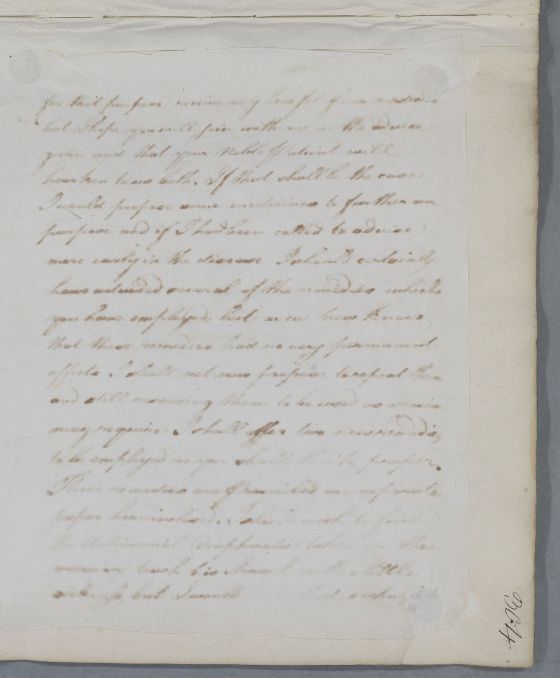 for that purpose receive any benefit from medicine
but I hope you will join with me in the advice
given and that your Noble Patient will
hearken to us both. If that shall be the case
I would propose some medicines to further our
purpose and if I had been called to advise
more early in the disease I should certainly
have intended several of the remedies which
you have employed but as we now know
that these remedies had no very permanent
effects I shall not now propose to repeat them
and still reserving them to be used as occasion
may require I shall offer two new remedies
to be employed as you shall think proper.
These remedies are prescribed on a separate
paper here inclosed. I should wish to find
the Antimonial Diaphoretic taken in the
but I would